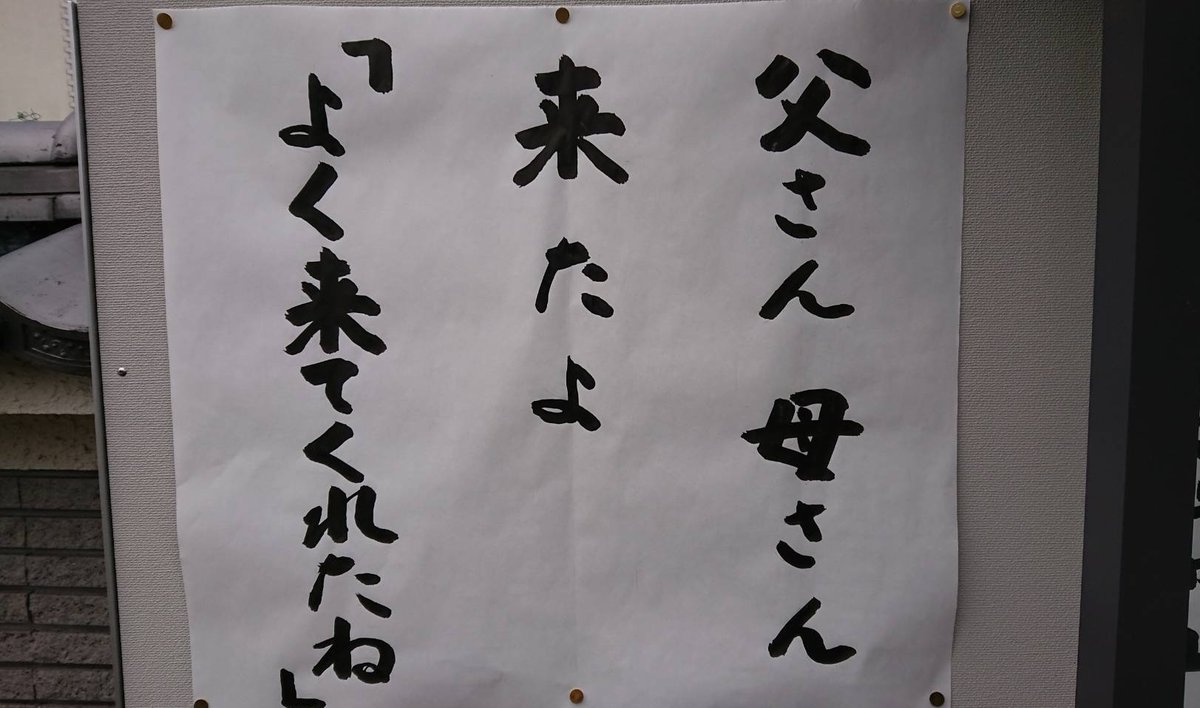 父さん 母さん
来たよ
「よく来てくれたね」